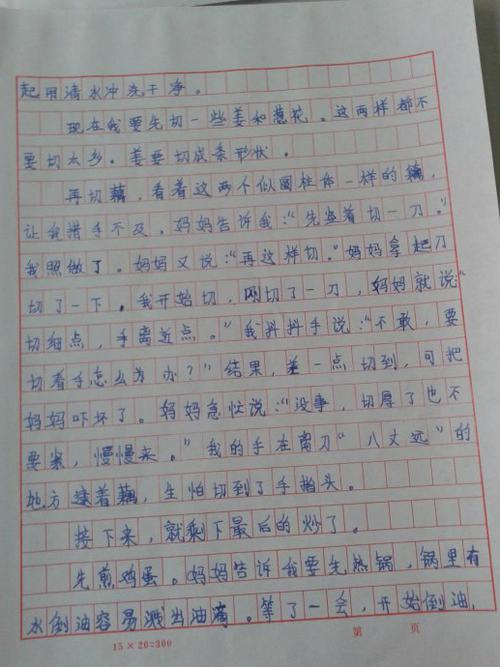 起用清水冲洗干净。
现在我要先切一些姜和葱花。这两样都不
要切太多。姜要切成条形状。
再切藕，看着这两个似圆柱体一样的藕，
让我措手不及。妈妈告诉我：“先竖着切一刀。”
我照做了。妈妈又说：“再这样切。”妈妈拿起刀
切了一下。我开始切，刚切了一刀，妈妈就说“
切细点，手离近点。”我抖抖手说：“不敢，要
切着手怎么为办？”结果，差一点切到，可把
妈妈吓坏了。妈妈急忙说：“没事，切厚了也不
要紧，慢慢来。”我的手在离刀“八丈远”的
地方接着藕，生怕切到了手指头。
接下来，就剩下最后的炒了。
先煎鸡蛋。妈妈告诉我要先热锅，锅里有
水倒油容易溅出油滴。等了一会，开始倒油，
15×20=300 第 页